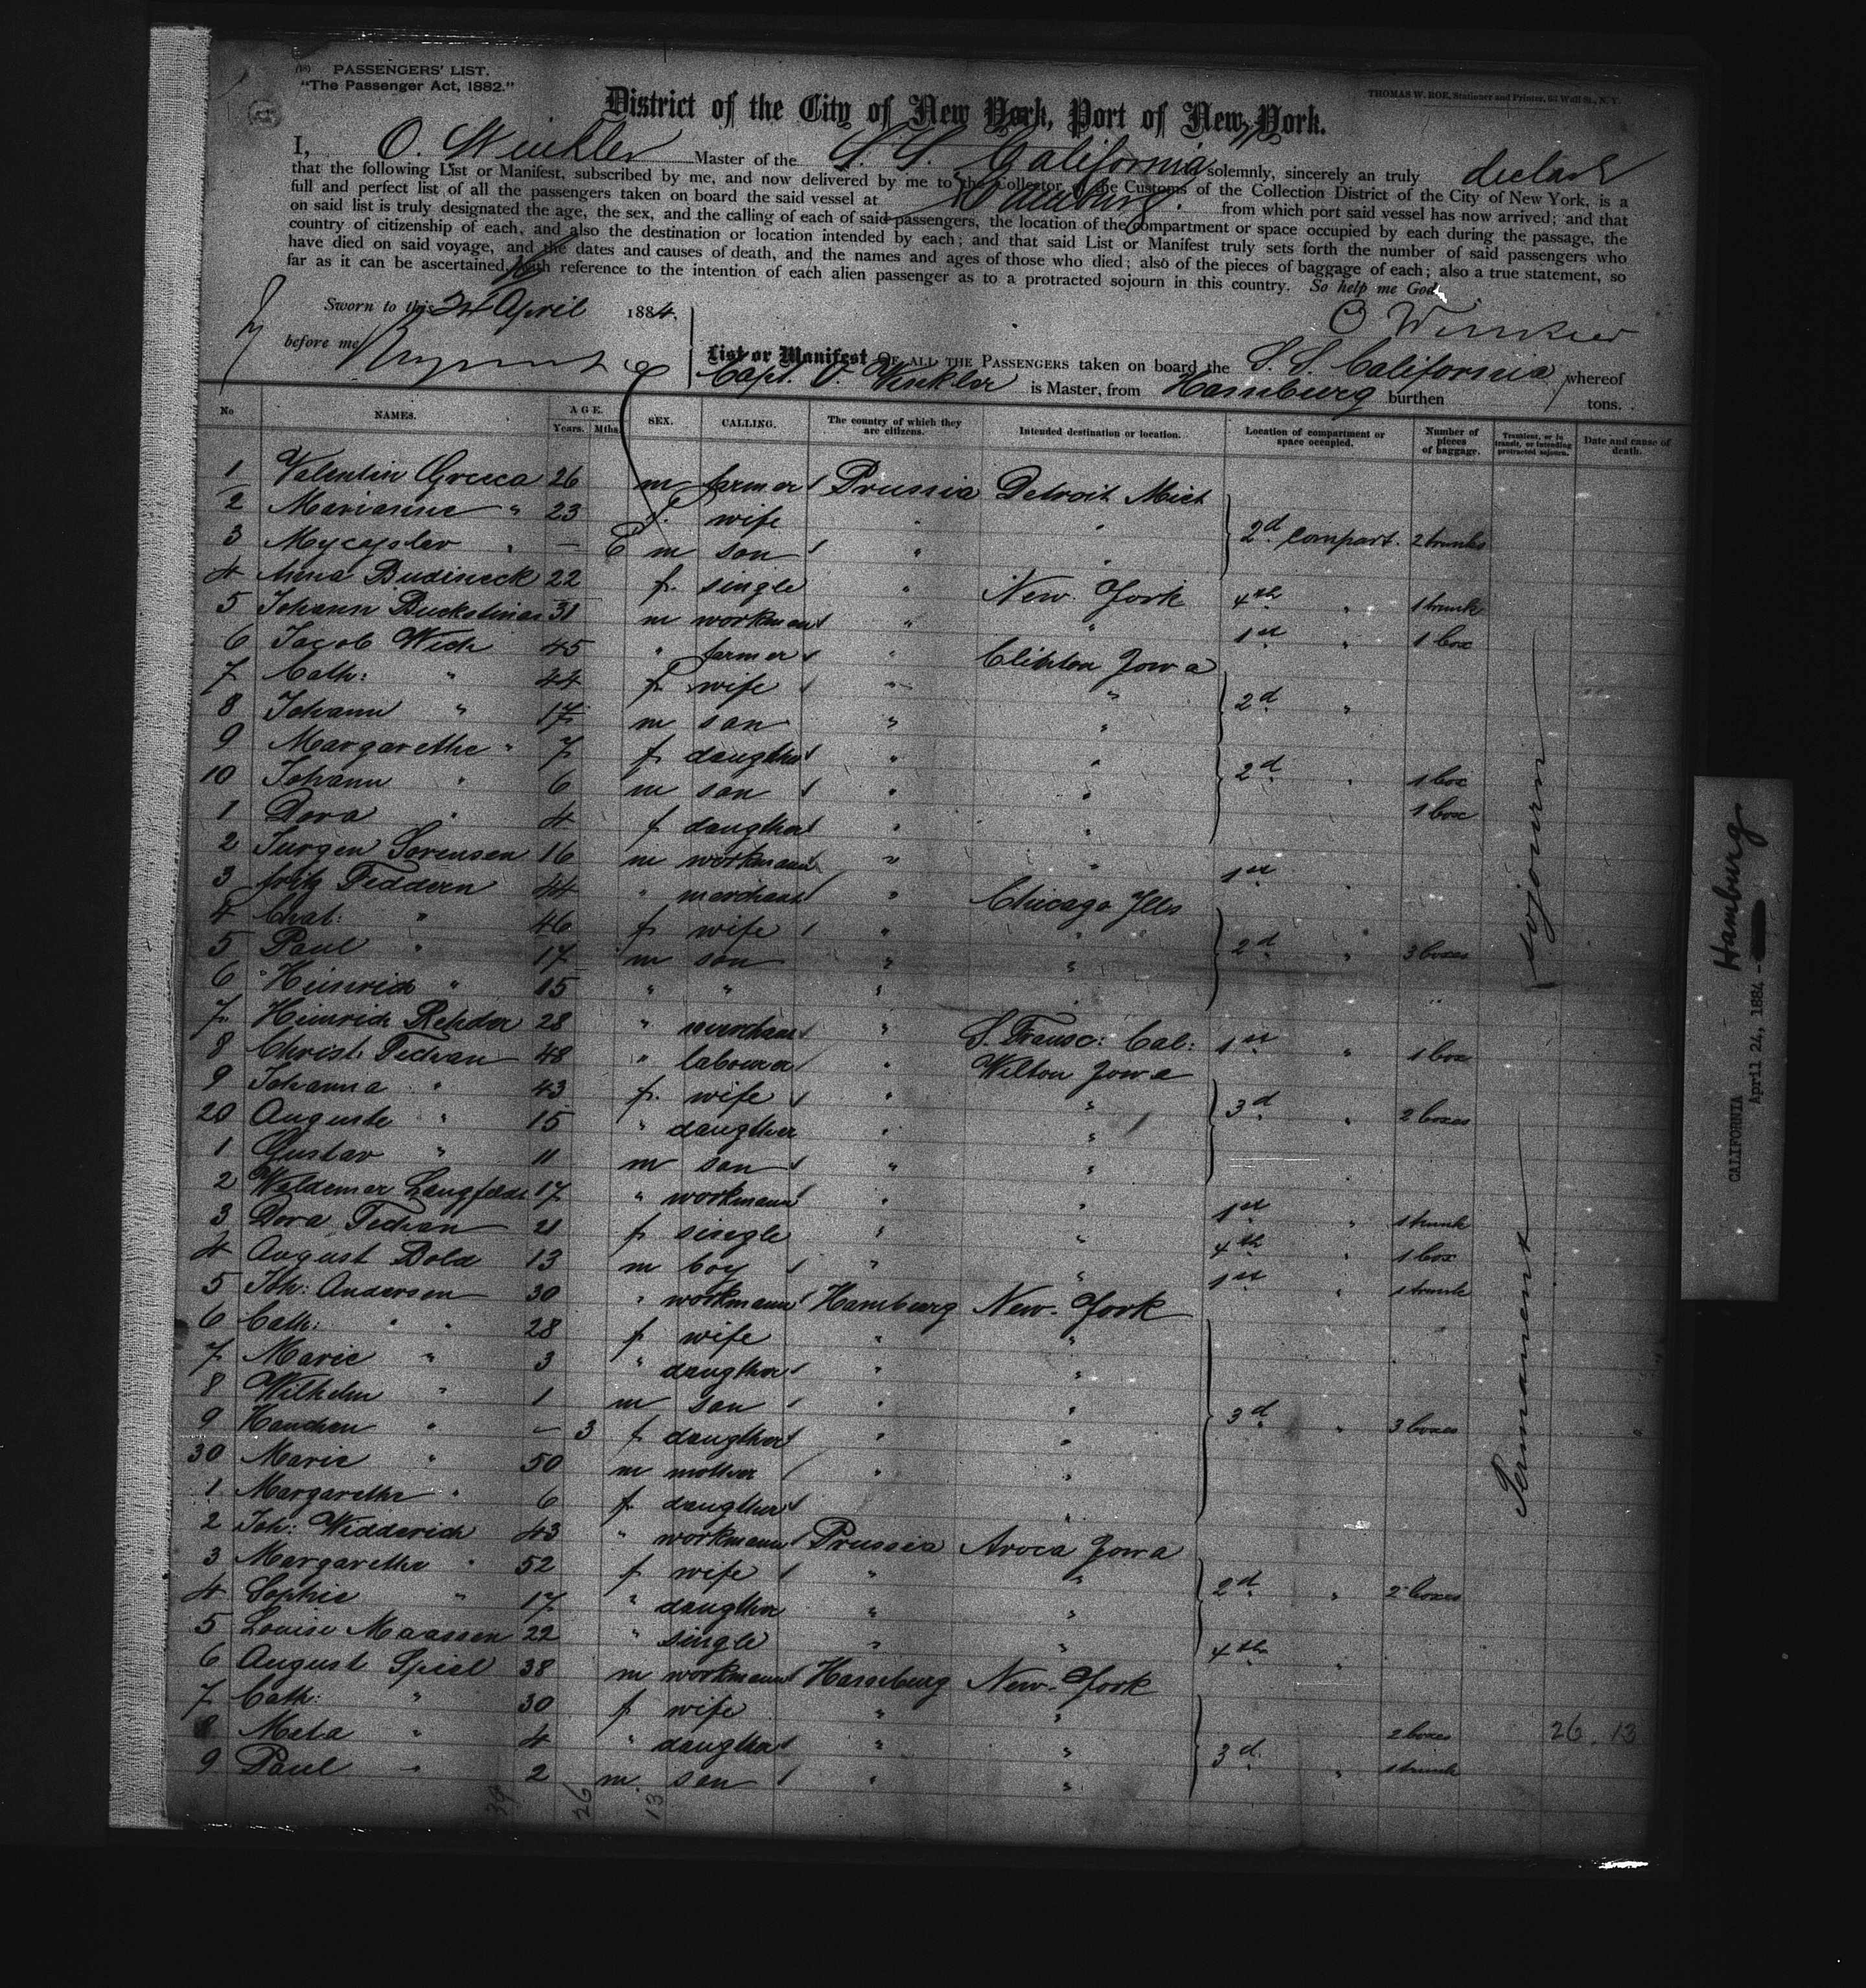 PASSENGERS' LIST.
"The Passenger Act, 1882."
THOMAS W. ROE, Stationer and Printer, 63 Wall St., N.Y.
District of the City of New York, Port of New York.
I, O. Winkler Master of the S. S. California solemnly, sincerely an truly declare
that the following List or Manifest, subscribed by me, and now delivered by me to the Collector of the Customs of the Collection District of the City of New York, is a
full and perfect list of all the passengers taken on board the said vessel at Hamburg. from which port said vessel has now arrived; and that
on said list is truly designated the age, the sex, and the calling of each of said passengers, the location of the compartment or space occupied by each during the passage, the
country of citizenship of each, and also the destination or location intended by each; and that said List or Manifest truly sets forth the number of said passengers who
have died on said voyage, and the dates and causes of death, and the names and ages of those who died; also of the pieces of baggage of each; also a true statement, so
far as it can be ascertained, with reference to the intention of each alien passenger as to a protracted sojourn in this country. So help me God
Sworn to this 24 April 1884. O Winkler
before me
List or Manifest OF ALL THE PASSENGERS taken on board the S. S. California whereof
Capt. O. Winkler is Master, from Hamburg burthen tons.
No NAMES. AGE. Years. Mths. SEX. CALLING. The country of which they are citizens. Intended destination or location. Location of compartment or space occupied. Number of pieces of baggage. Transient, or in transit, or intending protracted sojourn. Date and cause of death.
1 Valentin 26 m farmer Prussia Detroit Mich
2 Marianne " 23 f. wife " "
3 " — 6 m son " " 2d. compart. 2 trunks
4 Anna 22 f. single " New. York 4th " 1 trunk
5 Johann 31 m workmann " " 1st " 1 box
6 Jacob Wich 45 " farmer " Clinton Iowa
7 Cath: " 44 f. wife " "
8 Johann " 17 m son " " 2d "
9 Margarethe " 7 f. daugther " "
10 Johann " 6 m son " " 2d " 1 box
1 Dora " 4 f daugther " " 1 box
2 Jurgen Sorensen 16 m workmann " " 1st "
3 Fritz Feddern 44 " merchant " Chicago Ills
4 Chat: " 46 f. wife " "
5 Paul " 17 m son " " 2d " 3 boxes
6 Heinrich " 15 " " " "
7 Heinrich Rehder 28 " merchant " S. Fransc: Cal: 1st " 1 box
8 Christ. 48 " labourer " Wilton Iowa
9 Johanna " 43 f. wife " "
20 Auguste " 15 " daugther " " 3d " 2 boxes
1 Gustav " 11 m son " "
2 Waldemar Langfeldt 17 " workmann " " 1st " 1 trunk
3 Dora 21 f single " " 4th " 1 box
4 August Bold 13 m boy " " 1st " 1 trunk
5 Joh: Andersen 30 " workmann Hamburg New-York
6 Cath: " " 28 f wife " "
7 Marie " 3 " daugther " "
8 Wilhelm " 1 m son " "
9 " — 3 f daugther " " 3d " 3 boxes
30 Marie " 50 m mother " "
1 Margarethe " 6 f. daugther "
2 Joh: Widderich 43 " workmann Prussia Avoca Iowa
3 Margarethe " 52 f wife " "
4 Sophie " 17 " daugther " " 2d " 2 boxes
5 Louise Maassen 22 " single " " 4th "
6 August Spiel 38 m workmann Hamburg New-York
7 Cath: " 30 f wife " "
8 Meta " 4 " daugther " " 3d. " 2 boxes 26. 13
9 Paul " 2 m. son " " " 1 trunk
39 26 13
Permanent sojourn
CALIFORNIA Hamburg
April 24, 1884 -